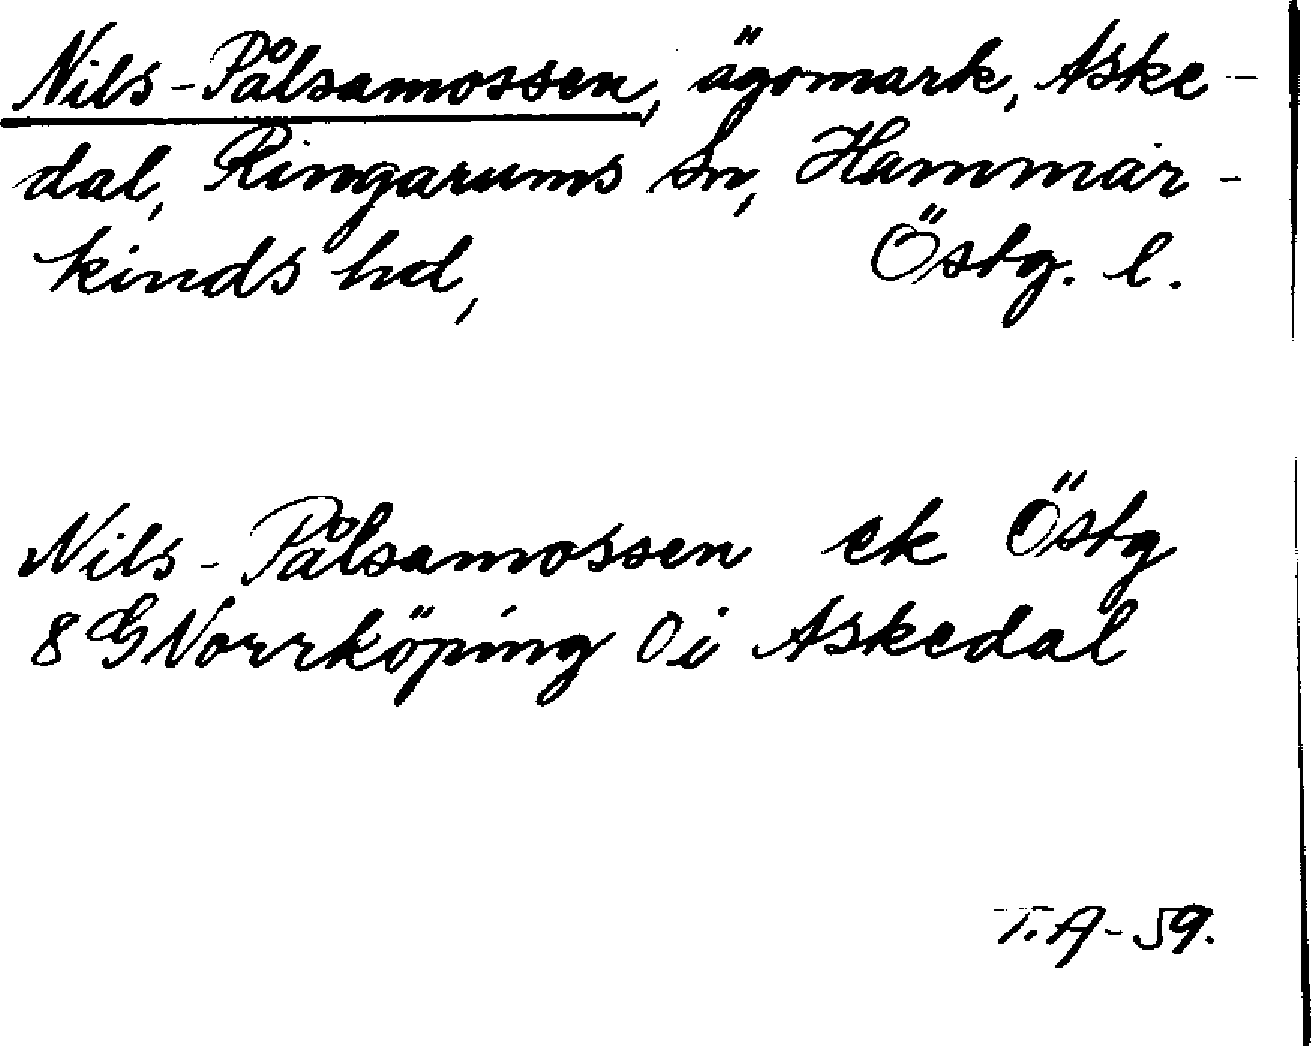 Nils-Pålsamossen, ägomark, Aske-
dal, Ringarums sn, Hammar-
kinds hd, Östg. l.
Nils-Pålsamossen ek Östg
8 G Norrköping O i Askedal
T.A-59.